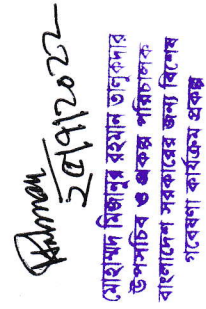 Rahman
২৫/9/2022
মোহাম্মদ মিজানুর রহমান তালুকদার
উপসচিব ও প্রকল্প পরিচালক
বাংলাদেশ সরকারের জন্য বিশেষ
গবেষণা কার্যক্রম প্রকল্প